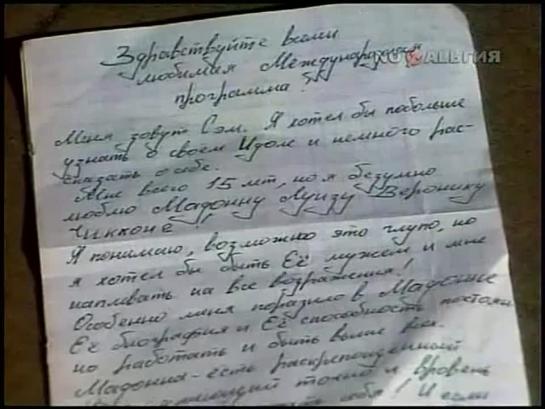 Здравствуйте всеми
любимая Международная
программа!
НО АЛЬГИЯ
Меня зовут Сэм. Я хотел бы побольше
узнать о своём Идоле и немного рас-
сказать о себе.
Мне всего 15 лет, но я безумно
люблю Мадонну Луизу Веронику
Чикконе!
Я понимаю, возможно это глупо, но
я хотел бы быть Её мужем и мне
наплевать на все возражения!
Особенно меня поразило в Мадонне
Её биография и Её способность постоян
но работать и быть выше всех.
Мадонна - есть раскрепощённый
точно и вровень
себя! И если